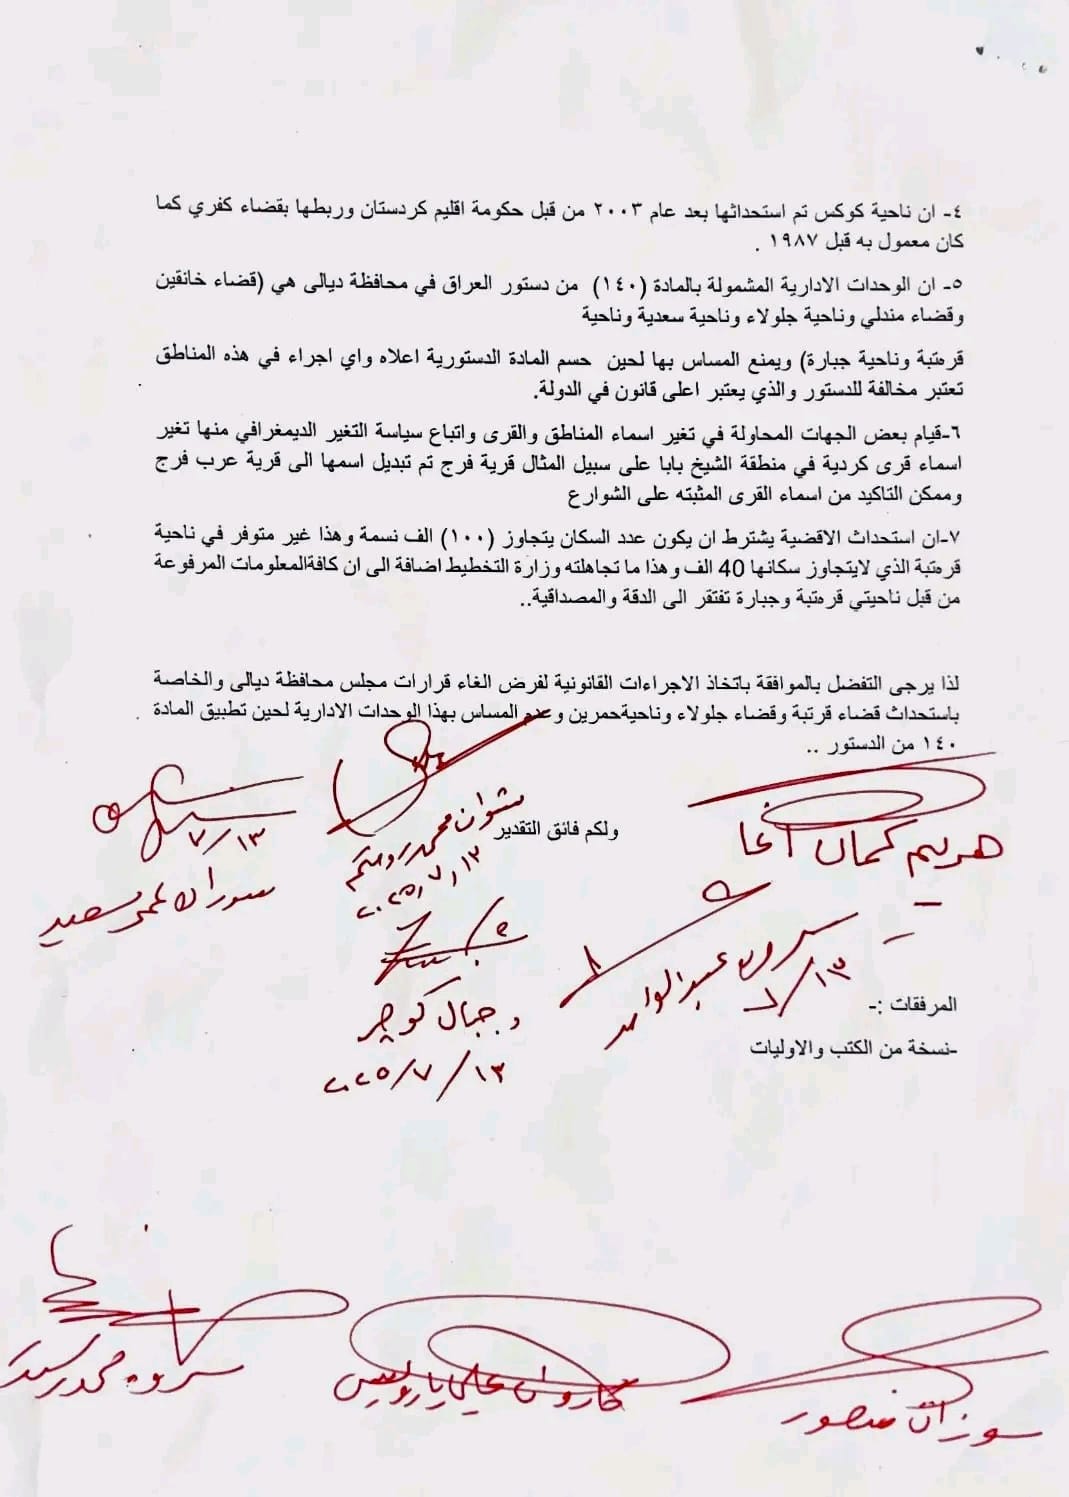 ٤- ان ناحية كوكس تم استحداثها بعد عام ٢٠٠٣ من قبل حكومة اقليم كردستان وربطها بقضاء كفري كما
كان معمول به قبل ١٩٨٧ .
٥- ان الوحدات الادارية المشمولة بالمادة (١٤٠) من دستور العراق في محافظة ديالى هي (قضاء خانقين
وقضاء مندلي وناحية جلولاء وناحية سعدية وناحية
قرەتبة وناحية جبارة) ويمنع المساس بها لحين حسم المادة الدستورية اعلاه واي اجراء في هذه المناطق
تعتبر مخالفة للدستور والذي يعتبر اعلى قانون في الدولة.
٦-قيام بعض الجهات المحاولة في تغير اسماء المناطق والقرى واتباع سياسة التغير الديمغرافي منها تغير
اسماء قرى كردية في منطقة الشيخ بابا على سبيل المثال قرية فرج تم تبديل اسمها الى قرية عرب فرج
وممكن التاكيد من اسماء القرى المثبته على الشوارع
٧-ان استحداث الاقضية يشترط ان يكون عدد السكان يتجاوز (١٠٠) الف نسمة وهذا غير متوفر في ناحية
قرەتبة الذي لايتجاوز سكانها 40 الف وهذا ما تجاهلته وزارة التخطيط اضافة الى ان كافةالمعلومات المرفوعة
من قبل ناحيتي قرەتبة وجبارة تفتقر الى الدقة والمصداقية..
لذا يرجى التفضل بالموافقة باتخاذ الاجراءات القانونية لفرض الغاء قرارات مجلس محافظة ديالى والخاصة
باستحداث قضاء قرتبة وقضاء جلولاء وناحيةحمرين وعدم المساس بهذا الوحدات الادارية لحين تطبيق المادة
١٤٠ من الدستور ..
ولكم فائق التقدير
هريم كمال آغا
محمد رستم
٢٠٢٥/٧/١٣
٧/١٣
سوران عمر سعيد
عبدالواحد
٧/١٣
د. جمال كوجر
٢٠٢٥/٧/١٣
المرفقات :-
-نسخة من الكتب والاوليات
سوزان منصور
كاروان علي يارويس
سروه محمد رشيد